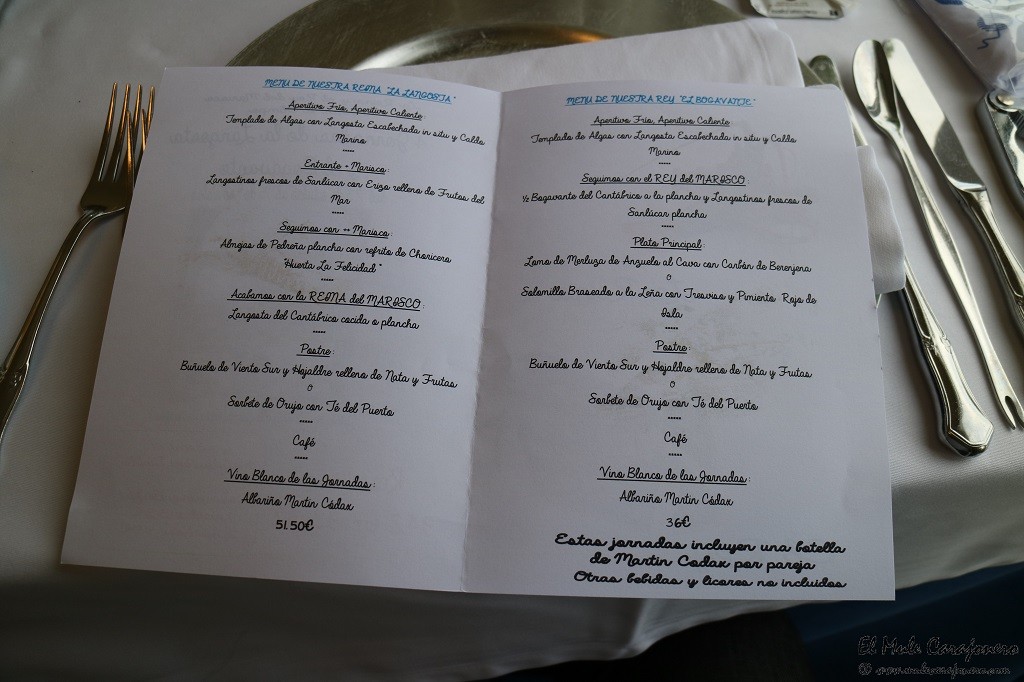 MENU DE NUESTRA REINA "LA LANGOSTA"
Aperitivo Frío, Aperitivo Caliente:
Templado de Algas con Langosta Escabechada in situ y Caldo
Marino
*****
Entrante + Marisco:
Langostinos frescos de Sanlúcar con Erizo relleno de Frutos del
Mar
*****
Seguimos con ++ Marisco:
Almejas de Pedreña plancha con refrito de Choricero
"Huerta La Felicidad"
*****
Acabamos con la REINA del MARISCO:
Langosta del Cantábrico cocida o plancha
*****
Postre:
Buñuelo de Viento Sur y Hojaldre relleno de Nata y Frutas
O
Sorbete de Orujo con Té del Puerto
*****
Café
*****
Vino Blanco de las Jornadas:
Albariño Martin Códax
51.50€
MENU DE NUESTRA REY "EL BOGAVANTE"
Aperitivo Frío, Aperitivo Caliente:
Templado de Algas con Langosta Escabechada in situ y Caldo
Marino
*****
Seguimos con el REY del MARISCO:
½ Bogavante del Cantábrico a la plancha y Langostinos frescos de
Sanlúcar plancha
*****
Plato Principal:
Lomo de Merluza de Anzuelo al Cava con Carbón de Berenjena
O
Solomillo Braseado a la Leña con Tresviso y Pimiento Rojo de
Isla
*****
Postre:
Buñuelo de Viento Sur y Hojaldre relleno de Nata y Frutas
O
Sorbete de Orujo con Té del Puerto
*****
Café
*****
Vino Blanco de las Jornadas:
Albariño Martin Códax
36€
Estas jornadas incluyen una botella
de Martin Codax por pareja
Otras bebidas y licores no incluidos
El Mule Carajonero
© www.mulecarajonero.com